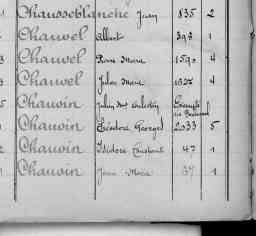 Chausseblanche Jean 835 2
Chauvel Albert 393 1
Chauvel Pierre Marie 1590 4
Chauvel Julien Marie 1327 4
Chauvin Julien
Chauvin Théodore Georges 2033 5
Chauvin Isidore Constant 47 1
Chauvin Jean Marie 37 1